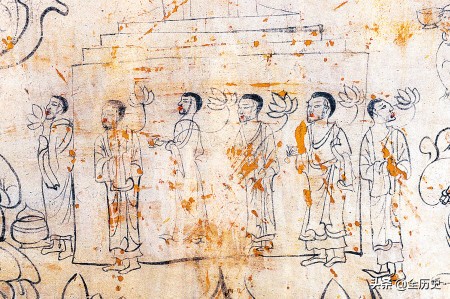 头条@全历史